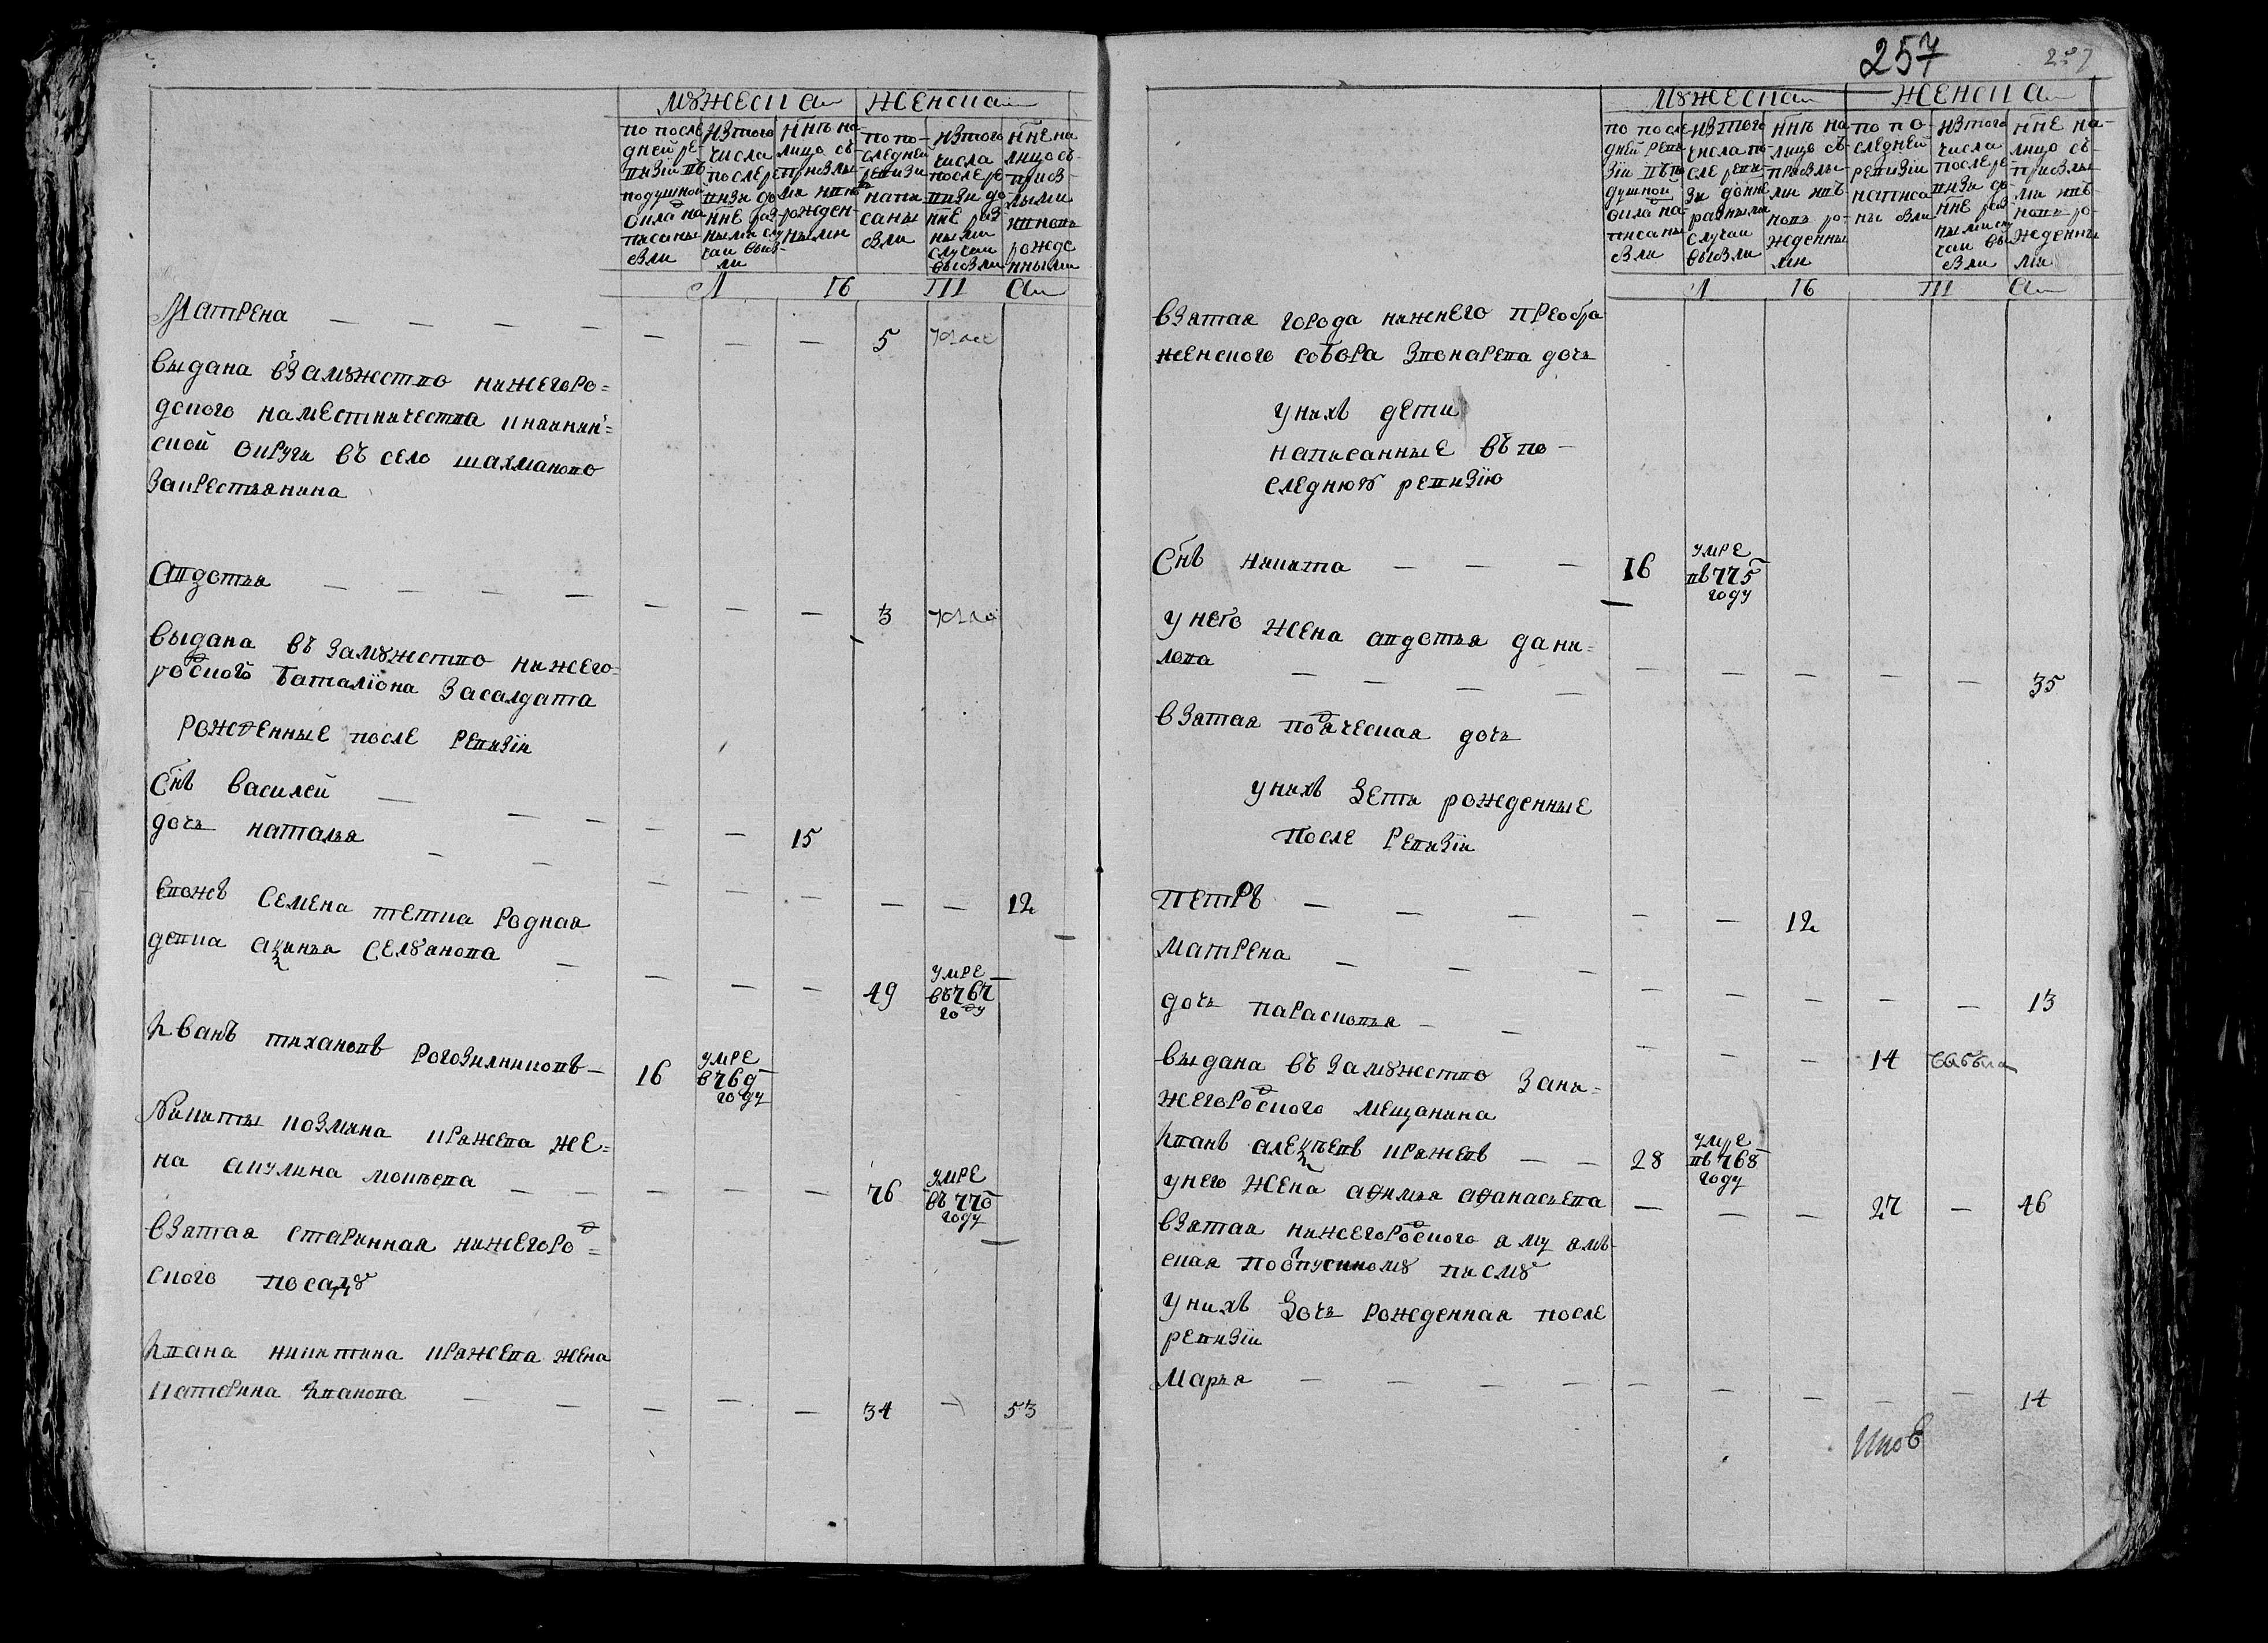 мꙋжеска женска
по после
дней ре
визїи въ
подушной
оклад на
писаны
ѣзли
изъ того
числа
после ре
визи до
нне раз
ными слу
чаи выбы
ли
нне на
лицо съ
прибылы
ми и вновь
рожден
ными
по по
следней
ревизи
напи
саны
изъ того
числа
после ре
визи до
нне раз
ными
случаи
выбыли
нне на
лицо съ
приб
лыми
и вновь
рожде
нными
л лѣ
Матрена — — — — — — — 5
выдана взамꙋжество нижегоро=
дского наместничества княгин=
ской округи въ село шахманово
закрестьянина
авдотья — — — — — — — 3
выдана въ замꙋжество нижего=
родского баталїона засалдата
рожденные после ревизїи
Снъ василей — — — — — 15
дочь наталья — — — — — — — — 12
Евожъ семена тетка родная
девка аксинья селꙋанова — — — — 49 умре въ 767 году
Иванъ тихановъ рогозилниковъ — 16 умре в 769 году
Никиты козмина кряжева же=
на акулина мокѣева — — — — — 76 умре въ 770 году
взятая старинная нижегоро=
ского посадꙋ
Ивана никитина кряжева жена
катерина иванова — — — — — 34 — 53
257
257
мꙋжеска женска
по после
дней реви
зїи въ по
душной
оклад на
писаны
изъ того
числа по
сле реви
зи до нне
разными
случаи
выбыли
нне на
лицо съ
прибылы
ми и въ
новь ро
жденны
ми
по по
следней
ревизїи
написа
ны
изъ того
числа
после ре
визи до
нне раз
ными слу
чаи вы
были
нне на
лицо съ
прибылы
ми и въ
новь ро
жденны
ми
л лѣ
взятая города нижнего преобра
женского собора звонарева дочь
у нихъ дети
написанные въ по—
следнюю ревизїю
Снъ никита — — — 16 умре въ 775 году
у него жена авдотья дани=
лова — — — — — — — — — 35
взятая подяческая дочь
у нихъ дети рожденные
после ревизїи
петръ — — — — — 12
матрена — — — — — — — — 13
дочь парасковья — — — — — 14
выдана въ замꙋжество зани=
жегородского мещанина
Иванъ алексѣевъ кряжевъ — — 28 умре въ 768 году
у него жена афимья афанасьева — — — 27 — 46
взятая нижегородского ямꙋ ямъ=
ская по отпускномꙋ писмꙋ
у нихъ дочь рожденная после
ревизїи
марья — — — — — — — — — 14